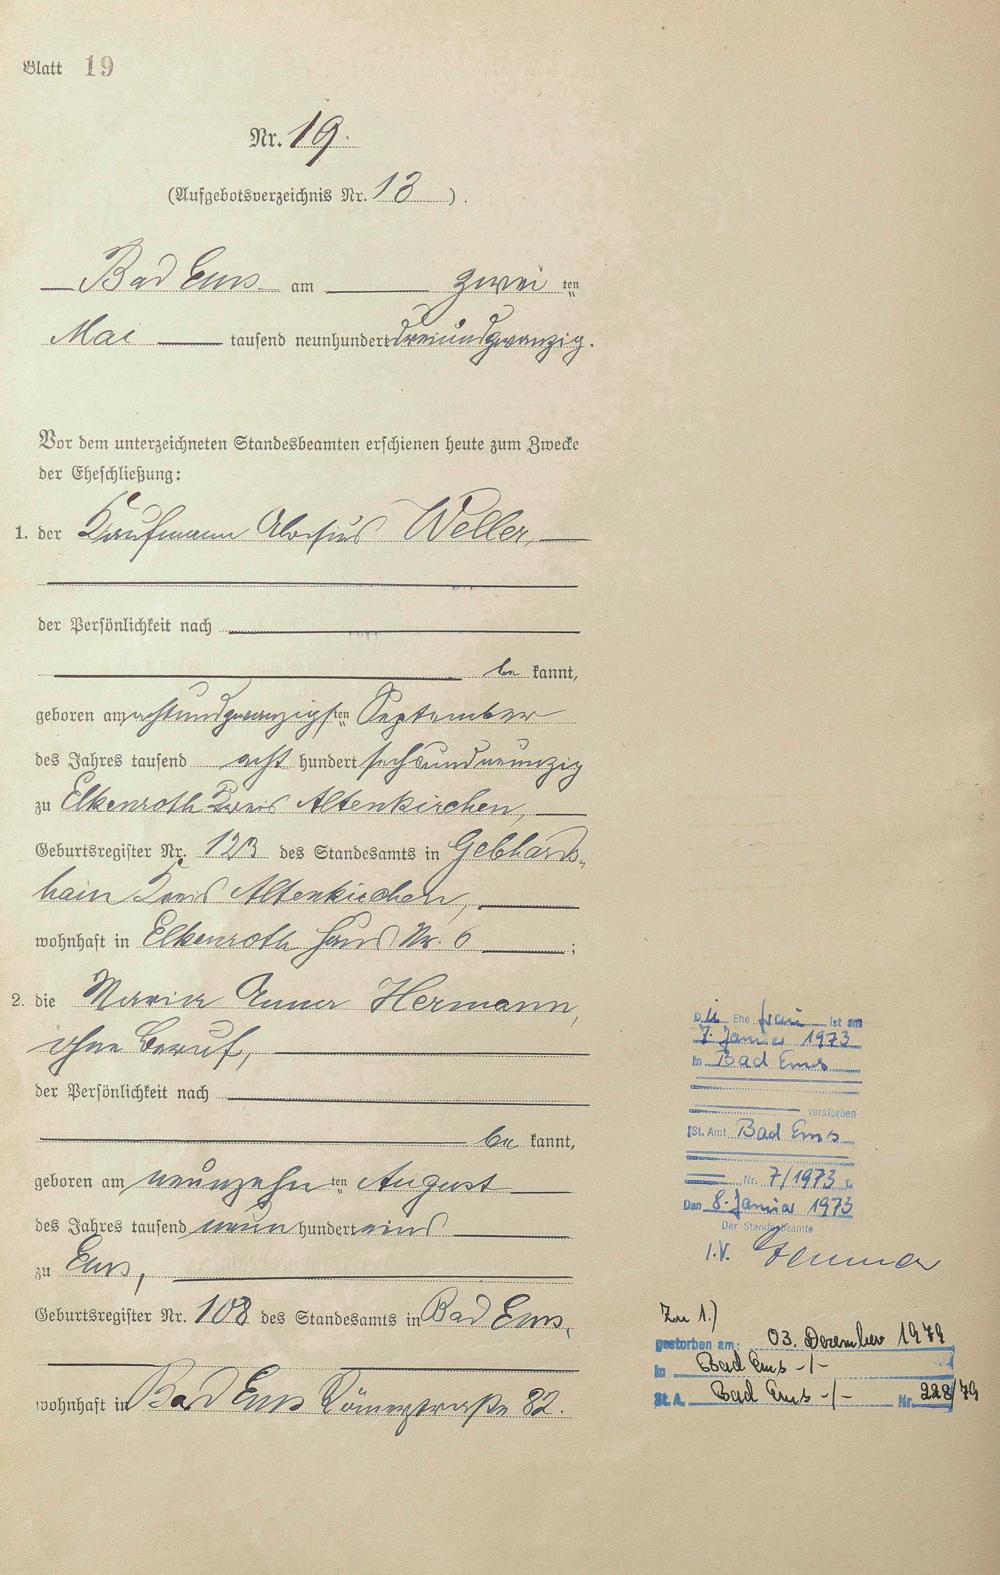 Blatt 19
Nr. 19.
(Aufgebotsverzeichnis Nr. 13 ).
Bad Ems am zwei ten
Mai tausend neunhundert dreiundzwanzig.
Vor dem unterzeichneten Standesbeamten erschienen heute zum Zwecke
der Eheschließung:
1. der Kaufmann Aloisius Weller,
der Persönlichkeit nach
be kannt,
geboren am achtundzwanzigsten September
des Jahres tausend acht hundert sechsundneunzig
zu Elkenroth Kreis Altenkirchen,
Geburtsregister Nr. 123 des Standesamts in Gebhards-
hain Kreis Altenkirchen,
wohnhaft in Elkenroth Haus Nr. 6 ;
2. die Maria Anna Hermann,
ohne Beruf,
der Persönlichkeit nach
be kannt,
geboren am neunzehn ten August
des Jahres tausend neun hundert eins
zu Ems,
Geburtsregister Nr. 108 des Standesamts in Bad Ems,
wohnhaft in Bad Ems Römerstraße 82.
Die Ehe frau ist am
7. Januar 1973
in Bad Ems
verstorben
St. Amt Bad Ems
Nr. 7/1973
Den 8. Januar 1973
Der Standesbeamte
I.V.
Zu 1.)
gestorben am: 03. Dezember 1979
in Bad Ems -/-
St.A. Bad Ems -/- Nr. 228/79